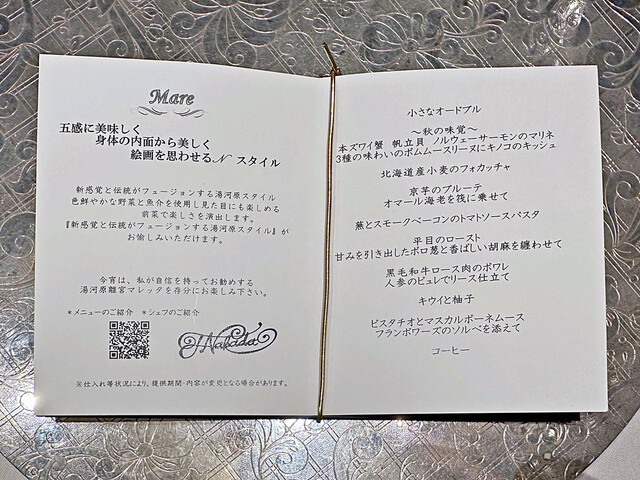 Mare
五感に美味しく
身体の内面から美しく
絵画を思わせるN スタイル
新感覚と伝統がフュージョンする湯河原スタイル
色鮮やかな野菜と魚介を使用し見た目にも楽しめる
前菜で楽しさを演出します。
『新感覚と伝統がフュージョンする湯河原スタイル』が
お愉しみいただけます。
今宵は、私が自信を持ってお勧めする
湯河原離宮マレッタを存分にお楽しみ下さい。
*メニューのご紹介 *シェフのご紹介
※仕入れ等状況により、提供期間・内容が変更となる場合があります。
小さなオードブル
～秋の味覚～
本ズワイ蟹 帆立貝 ノルウェーサーモンのマリネ
3種の味わいのポムムースリーヌにキノコのキッシュ
北海道産小麦のフォカッチャ
京芋のブルーテ
オマール海老を筏に乗せて
蕪とスモークベーコンのトマトソースパスタ
平目のロースト
甘みを引き出したポロ葱と香ばしい胡麻を纏わせて
黒毛和牛ロース肉のポワレ
人参のピュレでリース仕立て
キウイと柚子
ピスタチオとマスカルポーネムース
フランボワーズのソルベを添えて
コーヒー